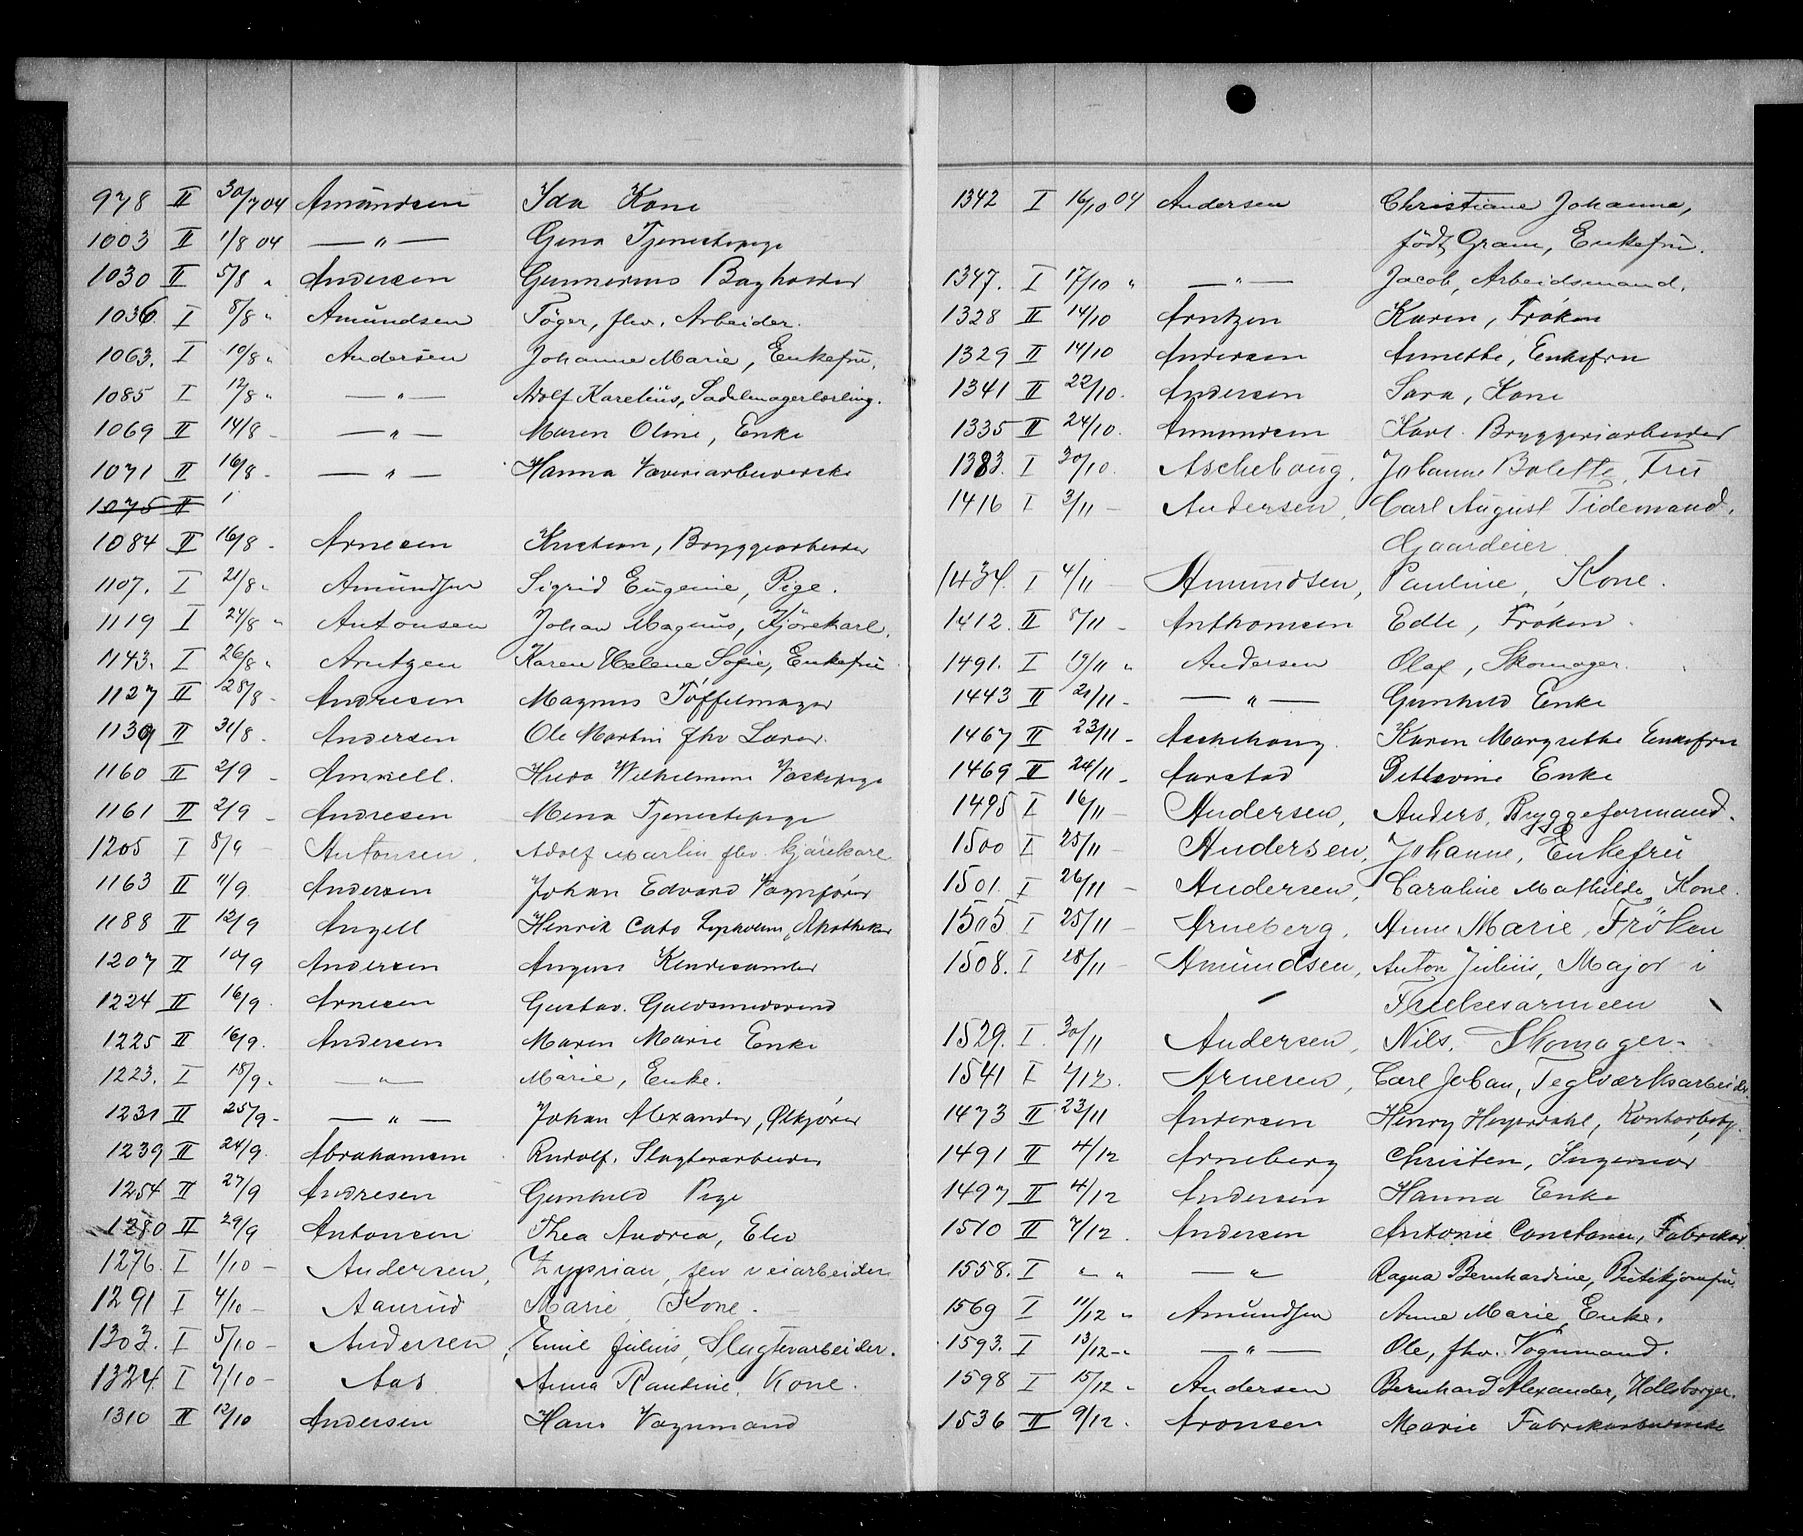 978 II 30/7 04 Amundsen Ida Kone
1003 II 1/8 04 — " — Gina Tjenestepige
1030 II 5/8 " Andersen Gunnerius Baghorer
1036 I 8/8 " Amundsen Töger, fhv. Arbeider.
1063. I 10/8 " Andersen Johanne Marie, Enkefru.
1085 I 12/8 " — " — Adolf Karelius, Sadelmagerlærling.
1069 II 14/8 - — " — Maren Oline, Enke
1071 II 16/8 - — " — Hanna Væveriarbeiderske
1075 II 1
1084 II 16/8 - Arnesen Kristian, Bryggearbeider
1107. I 21/8 " Amundsen Sigrid Eugenie, Pige.
1119 I 24/8 " Antonsen Johan Magnus, Kjörekarl.
1143. I 26/8 " Arntzen Karen Helene Sofie, Enkefru
1127 II 28/8 - Andresen Magnus Tøffelmager
1139 II 31/8 - Andersen Ole Martin fhv Lærer.
1160 II 2/9 - Amnell. Hilda Wilhelmine Vaskepige
1161 II 2/9 - Andresen Mina Tjenestepige
1205 I 8/9 - Antonsen. Adolf Martin fhv. kjörekarl
1163 II 11/9. Andersen Johan Edvard Vognfører
1188 II 12/9 Angell Henrik Cato Apotheker
1207 II 10/9 Andersen August
1224 II 16/9. Arnesen Gustav. Guldsmedsvend
1225 II 16/9. Andersen Maren Marie Enke
1223. I 18/9. " — " — Marie, Enke.
1231 II 25/9 - — " — Johan Alexander, Ølkjører
1239 II 24/9. Abrahamsen Rudolf. Slagterarbeider
1254 II 27/9 Andresen Gunhild Pige
1280 II 29/9 Antonsen Thea Andrea, Elev
1276. I 1/10 - Andersen, Zyprian, fhv veiarbeider
1291 I 4/10 - Aanrud Marie, Kone.
1303. I 5/10 - Andersen, Emil Julius, Slagterarbeider.
1324. I 7/10 - Aas Anna Pauline, Kone.
1310 II 12/10 Andersen Hans Vognmand
1342 I 16/10 04 Andersen Christiane Johanne,
födt Gram, Enkefru.
1347. I 17/10 " — " — Jacob, Arbeidsmand.
1328 II 14/10 Arntzen Karen, Frøken
1329 II 14/10 Andersen Annette, Enkefru
1341 II 22/10. Andersen Sara, Kone
1335 II 24/10. Amundsen Karl. Bryggeriarbeider
1383. I 30/10. Aschehoug, Johanne Bolette, Fru
1416 I 3/11 - Andersen, Carl August Tidemand,
Gaardeier
1434. I 4/11 Amundsen, Pauline, Kone.
1412. II 5/11 - Anthonsen Edle, Frøken.
1491. I 19/11 " Andersen Olaf, Skomager.
1443 II 21/11 - — " — Gunhild Enke
1467 II 23/11 - Aschehoug. Karen Margrethe Enkefru
1469 II 24/11 - Aarstad Ditlevine Enke
1495 I 16/11 - Andersen, Anders, Bryggeformand.
1500 I 25/11 - Andersen, Johanne, Enkefru
1501. I 26/11 - Andersen, Caroline Mathilde, Kone.
1505 I 25/11 - Arneberg, Anne Marie, Fröken
1508. I 28/11 - Amundsen, Anton Julius, Major i
Frelsesarmeen
1529. I. 30/11 Andersen, Nils, Skomager.
1541 I 1/12. Arnesen, Carl Johan, Teglværksarbeider
1473 II 23/11 Andersen Henry Heyerdahl, Kontorbetj.
1491 II 4/12 Arneberg Christen, Ingeniør
1497 II 4/12 Andersen Hanna Enke
1510 II 7/12. Andersen Antonie Constance, Fabrikar.
1558. I " " — " — Ragna Bernhardine,
1569 I 11/12 " Amundsen Anne Marie, Enke.
1593. I 13/12 - " — " — Ole, fhv. Vognmand.
1598 I 15/12 " Andersen Bernhard Alexander,
1536 II 9/12. Aronsen Marie Fabrikarbeiderske